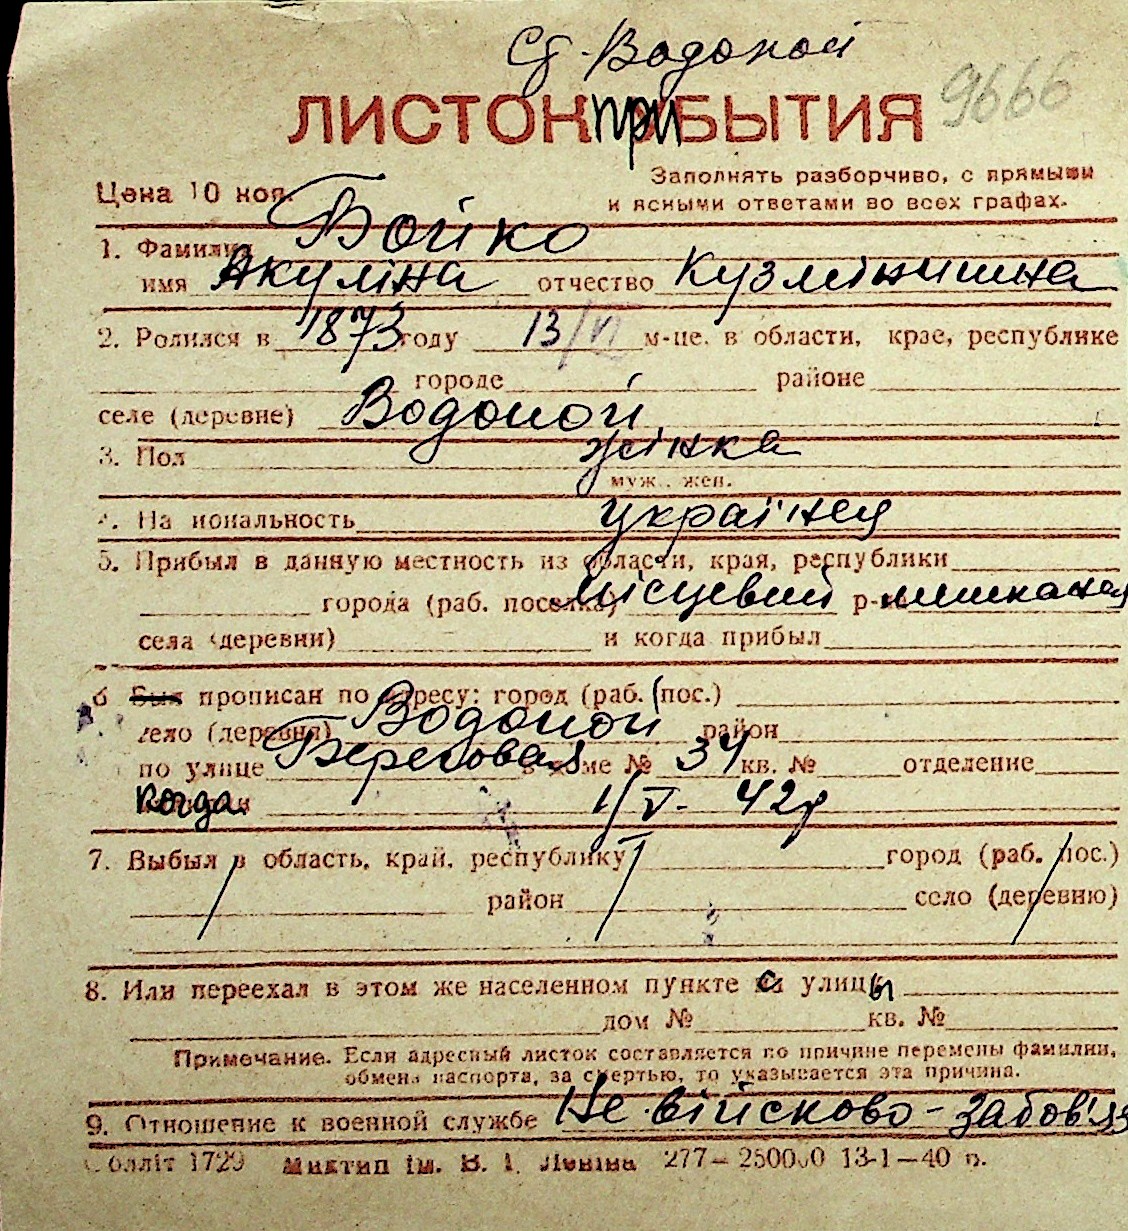 Сд. Водопой
ЛИСТОК приБЫТИЯ 9666
Цена 10 коп. Заполнять разборчиво, с прямыми
и ясными ответами во всех графах.
1. Фамилия Бойко
имя Акуліна отчество Кузмінишна
2. Родился в 1873 году 13/VI м-це. в области, крае, республике
городе районе
селе (деревне) Водопой
3. Пол жінка
муж. жен.
4. Национальность украінка
5. Прибыл в данную местность из области, края, республики
города (раб. поселка) місцевий р-на мешканец
села (деревни) и когда прибыл
6 Был прописан по адресу: город (раб. пос.)
село (деревня) Водопой район
по улице Береговая в доме № 34 кв. № отделение
когда 1/V- 42р
7. Выбыл в область, край, республику город (раб. пос.)
район село (деревню)
8. Или переехал в этом же населенном пункте с улицы
дом № кв. №
Примечание. Если адресный листок составляется по причине перемены фамилии,
обмена паспорта, за смертью, то указывается эта причина.
9. Отношение к военной службе Не військово-забов'яз
Обллiт 1729 Миктип iм. В. I. Ленiна 277—250000 13-1—40 р.